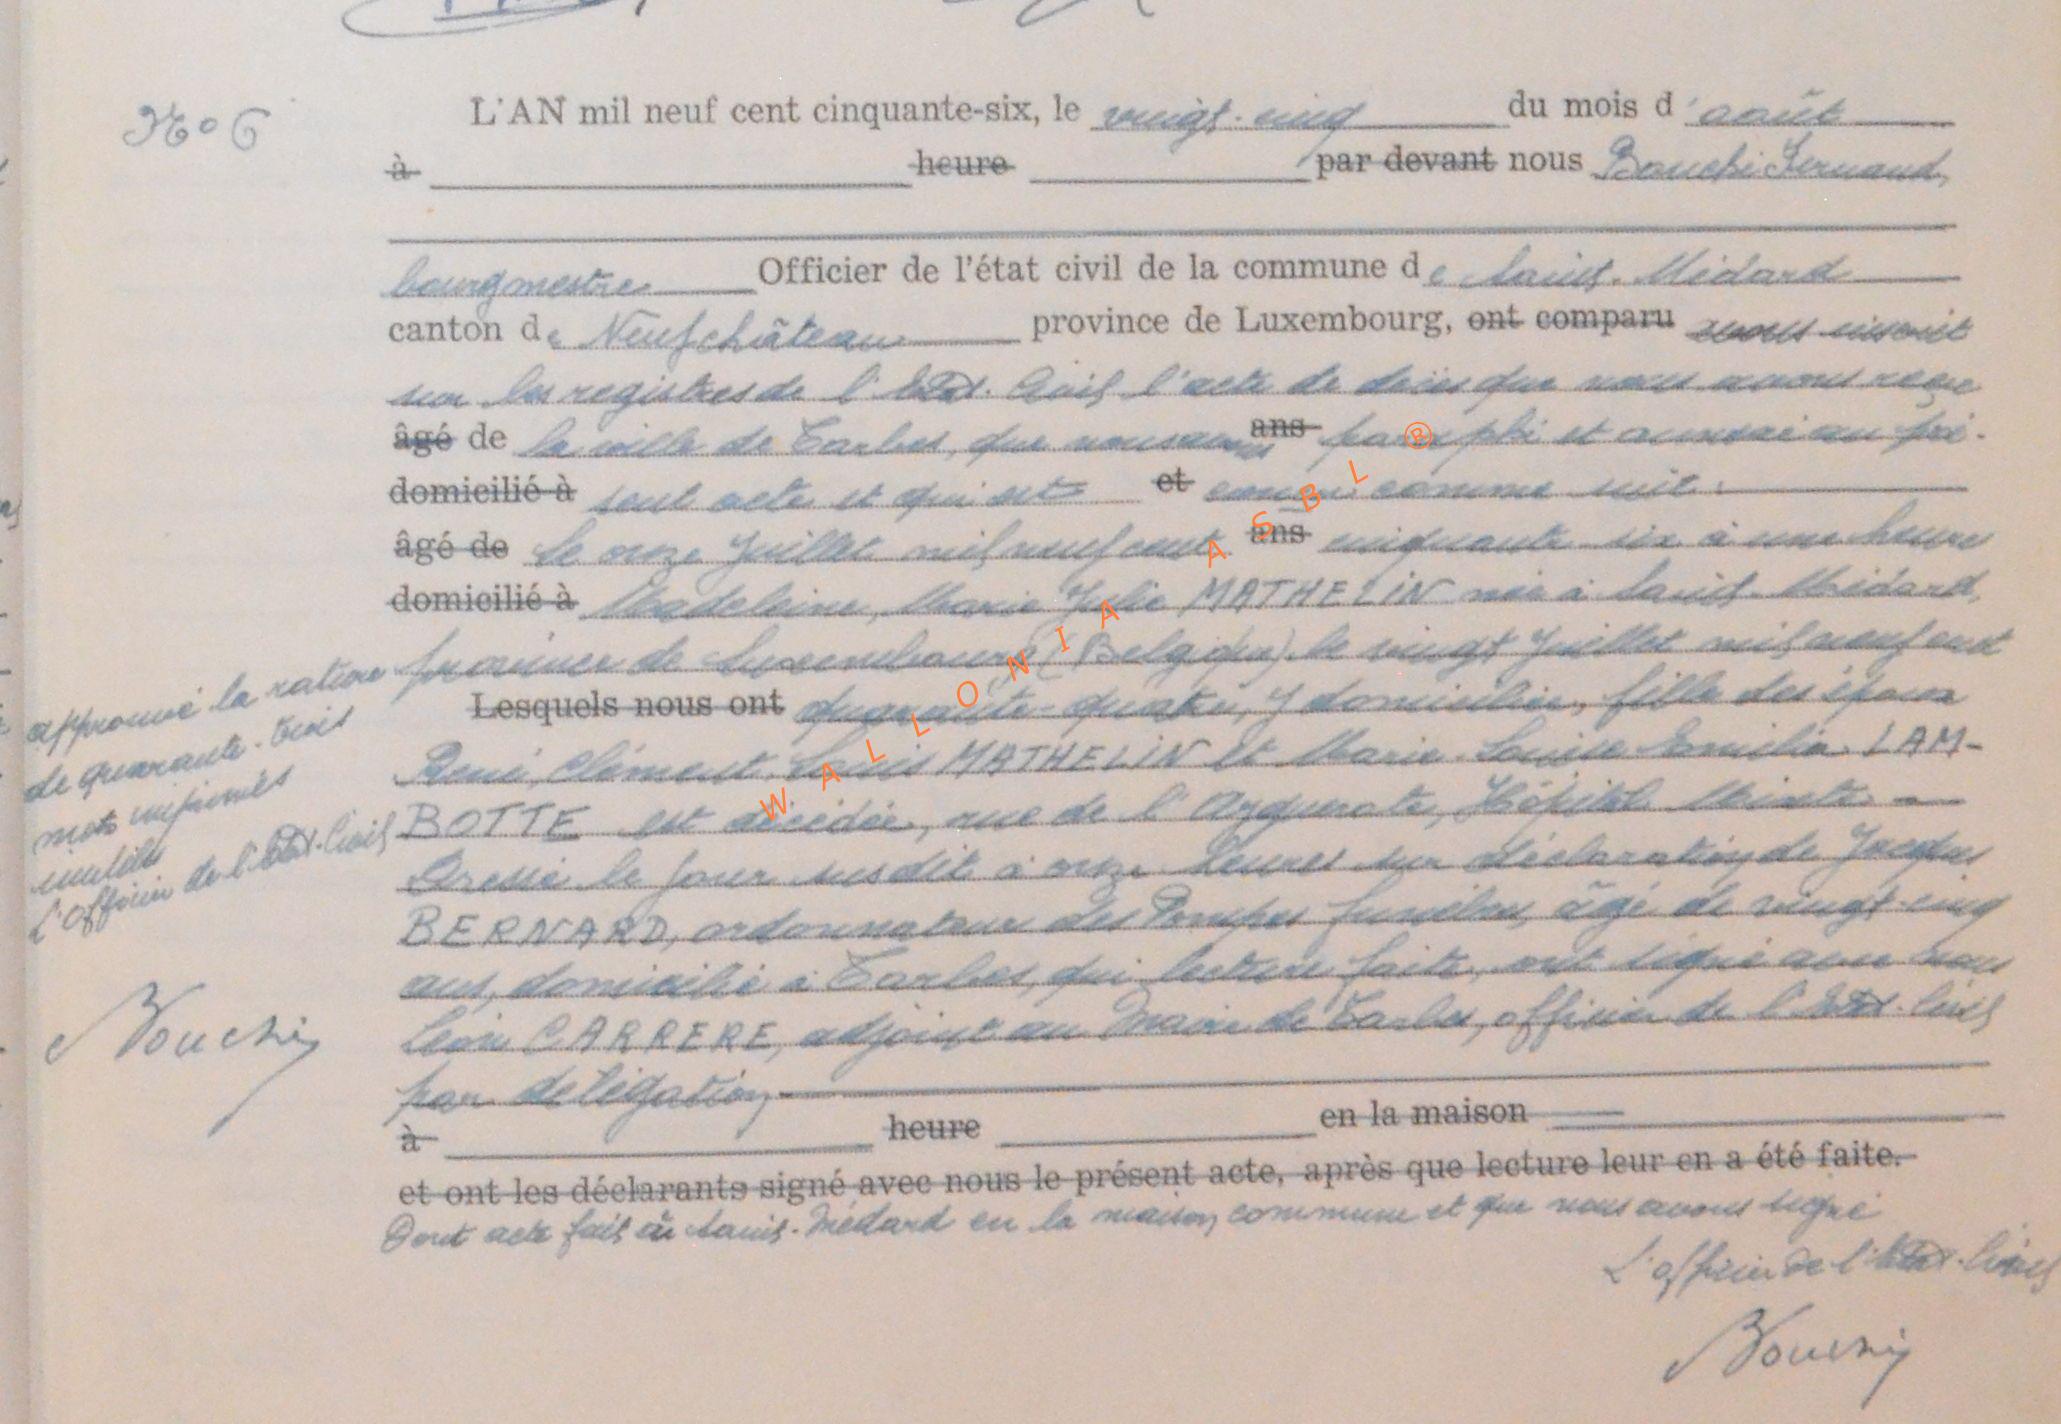 No 6
L'AN mil neuf cent cinquante-six, le vingt-cinq du mois d'août
à heure par devant nous Bouchi Fernand,
bourgmestre Officier de l'état civil de la commune de Saint-Médard
canton de Neufchâteau province de Luxembourg, ont comparu avons inscrit
sur les registres de l'Etat-Civil l'acte de décès que nous avons reçu
âgé de la ville de Tarbes, que nous avons ans paraphé et annexé au pré-
domicilié à sent acte et qui est et conçu comme suit :
âgé de Le onze Juillet mil neuf cent ans cinquante six à une heure
domicilié à Madeleine, Marie Julie MATHELIN née à Saint-Médard,
province de Luxembourg (Belgique) le vingt Juillet mil neuf cent
Lesquels nous ont quarante-quatre, y domiciliée, fille des époux
René, Clément, Louis MATHELIN et Marie-Louise Emilia LAM-
BOTTE est décédée, rue de l'Ayguerote, Hôpital Mixte.
Dressé le jour susdit à onze heures sur déclaration de Jacques
BERNARD, ordonnateur des Pompes funèbres, âgé de vingt-cinq
ans, domicilié à Tarbes, qui lecture faite, ont signé avec nous
Léon CARRERE, adjoint au Maire de Tarbes, officier de l'Etat-Civil
par délégation
à heure en la maison
et ont les déclarants signé avec nous le présent acte, après que lecture leur en a été faite.
Dont acte fait à Saint-Médard en la maison commune et que nous avons signé
L'officier de l'Etat-Civil
Bouchi
approuvé la rature
de quarante-trois
mots imprimés
inutiles
L'officier de l'Etat-Civil
Bouchi
WALLONIA ASBL ®